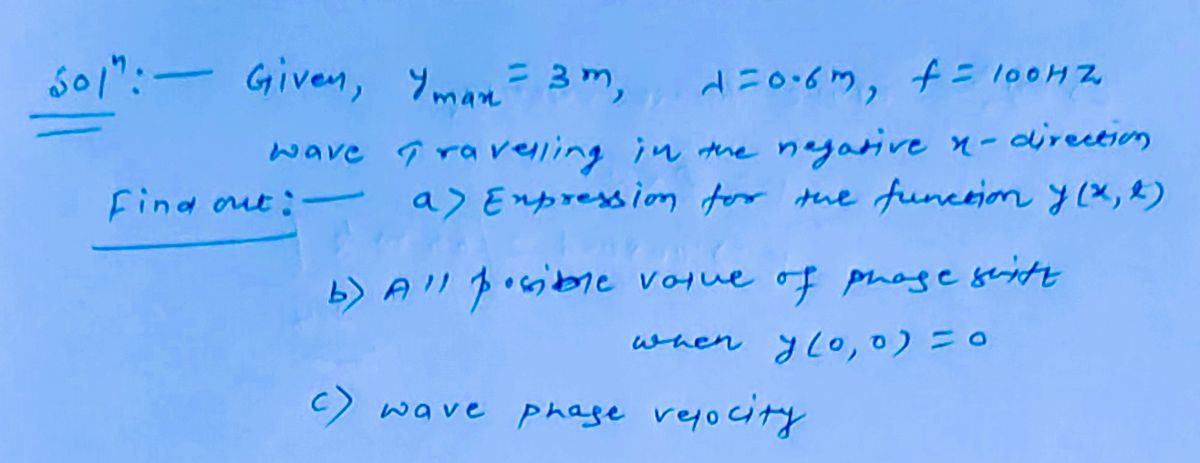 Solⁿ:— Given, ymax = 3m, λ=0.6m, f=100HZ
wave Travelling in the negative x-direction
Find out:— a) Expression for the function y(x,t)
b) All possible value of phase shift
when y(0,0)=0
c) wave phase velocity